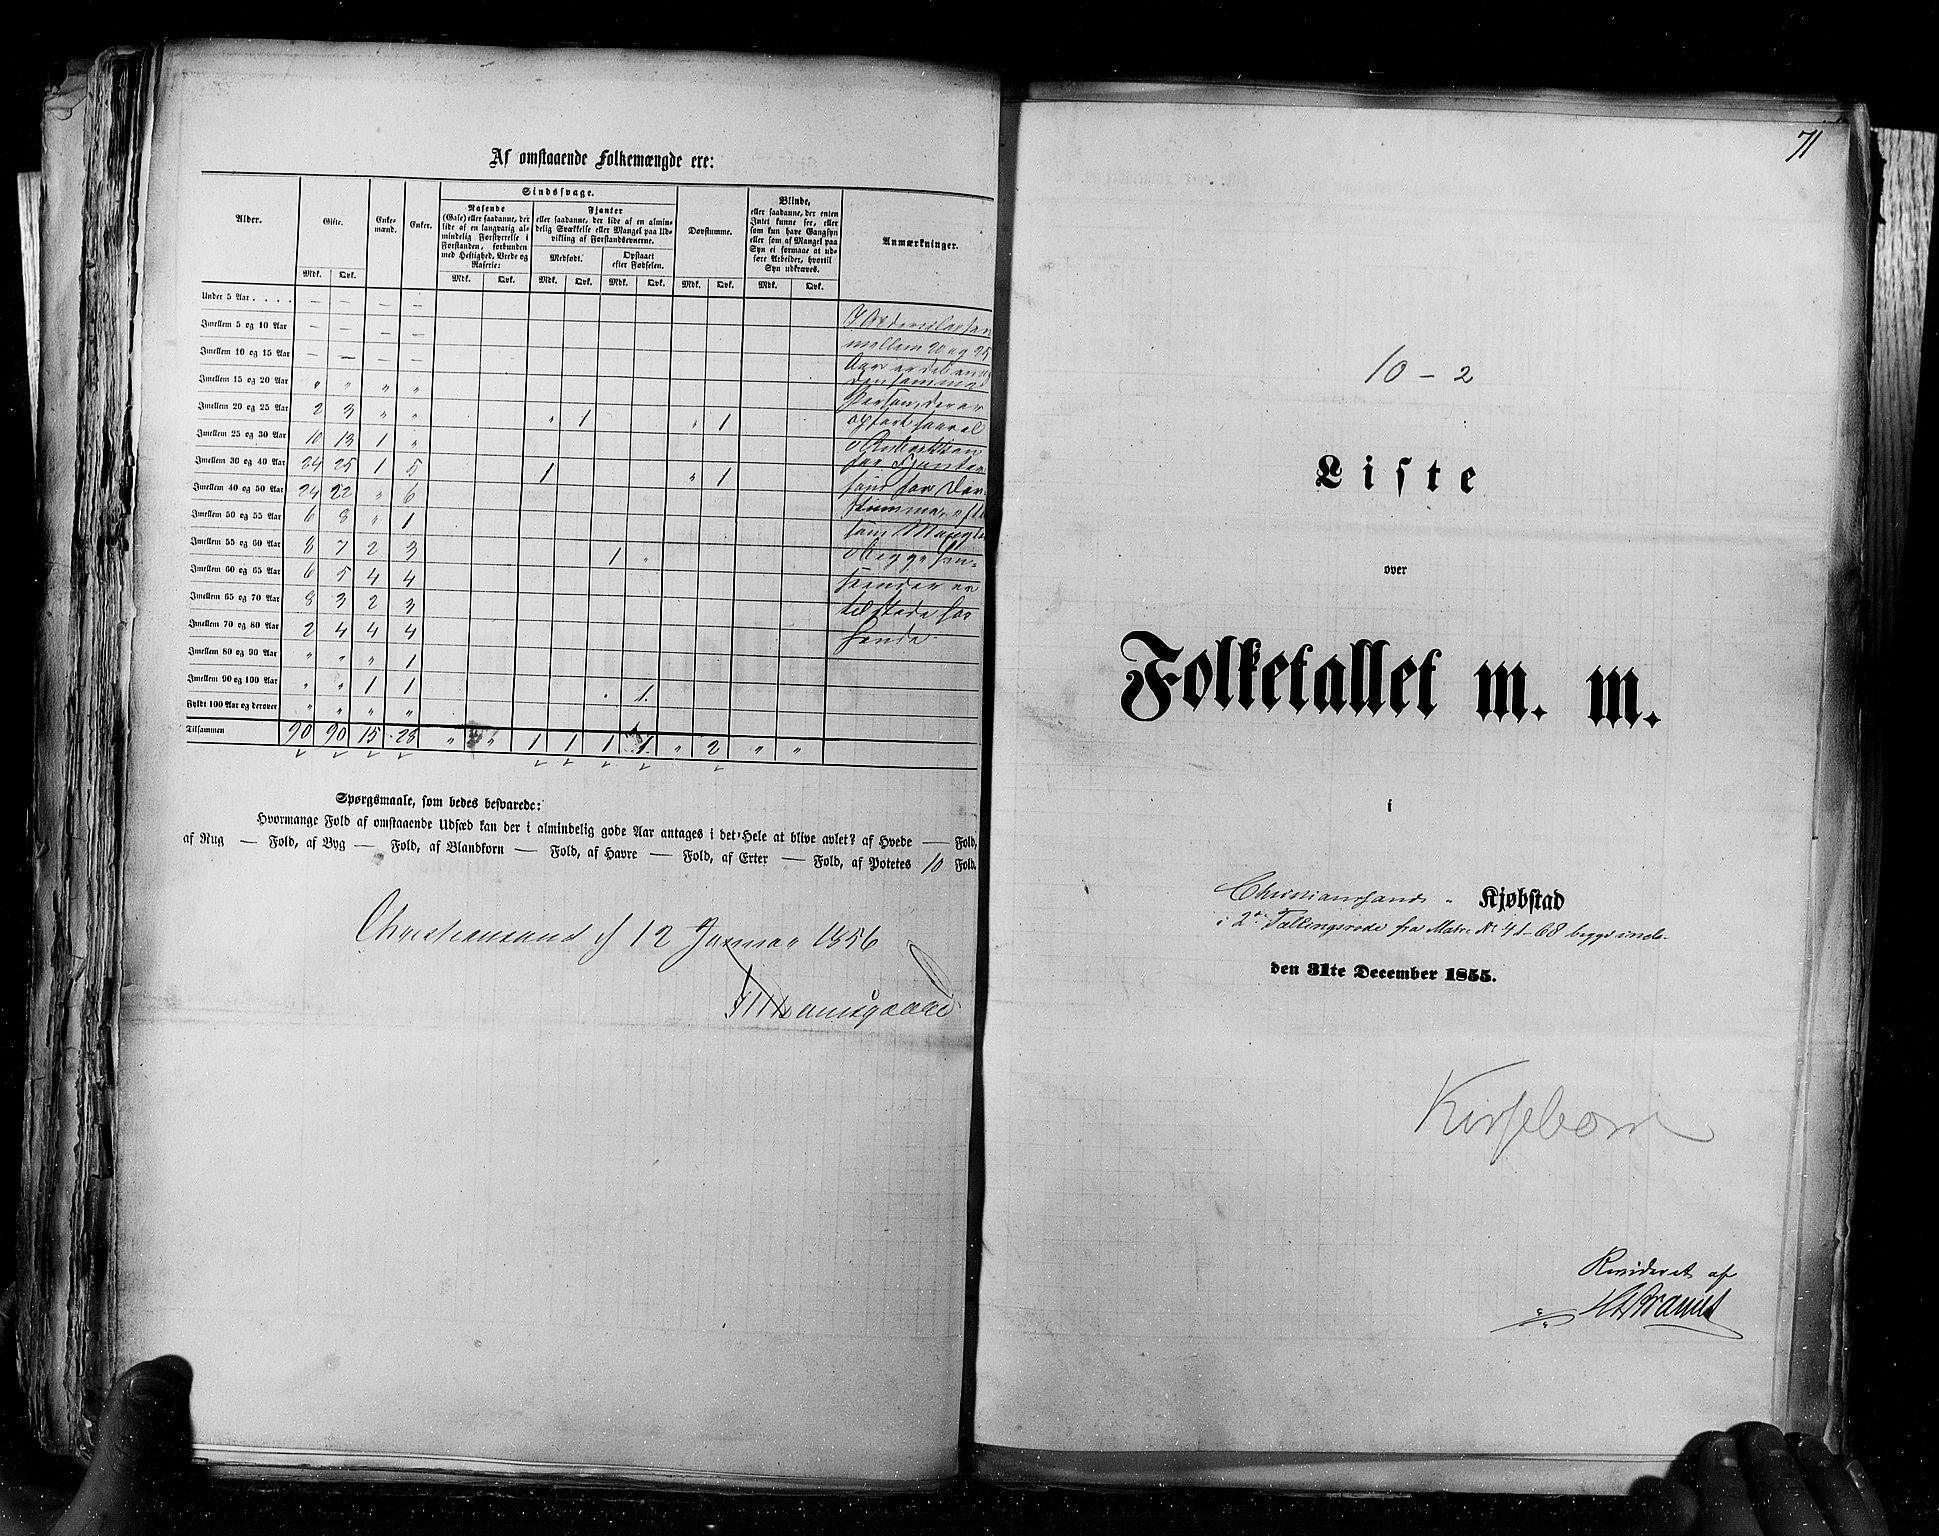 Af omstaaende Folkemængde ere:
Alder. Gifte. Enkemænd. Enker. Sindssvage. Døvstumme. Blinde, eller saadanne, der enten Intet kunne see, eller som kun have Gangsyn eller som af Mangel paa Syn ei formaae at udføre Arbeider, hvortil Syn udkræves. Anmærkninger.
Rasende (Gale) eller saadanne, der lide af en langvarig almindelig Forstyrrelse i Forstanden, forbunden med Heftighed, Vrede og Raserie:
Fjanter eller saadanne, der lide af en almindelig Svækkelse eller Mangel paa Udvikling af Forstandsevnerne.
Medfødt. Opstaaet efter Fødselen.
Mdk. Qvk. Mdk. Qvk. Mdk. Qvk. Mdk. Qvk. Mdk. Qvk. Mdk. Qvk.
Under 5 Aar . . . . — — — —
Imellem 5 og 10 Aar — — — —
Imellem 10 og 15 Aar — — — —
Imellem 15 og 20 Aar " " " "
Imellem 20 og 25 Aar 2 3 " " " 1 " 1
Imellem 25 og 30 Aar 10 13 1 "
Imellem 30 og 40 Aar 24 25 1 5 1 " 1
Imellem 40 og 50 Aar 24 22 " 6
Imellem 50 og 55 Aar 6 8 " 1
Imellem 55 og 60 Aar 8 7 2 3 1 "
Imellem 60 og 65 Aar 6 5 4 4
Imellem 65 og 70 Aar 8 3 2 3
Imellem 70 og 80 Aar 2 4 4 4
Imellem 80 og 90 Aar " " " 1
Imellem 90 og 100 Aar " " 1 1 " 1.
Fyldt 100 Aar og derover " " " "
Tilsammen 90 90 15 28 " " 1 1 1 1 " 2 " "
mellem 20 og 25
Spørgsmaale, som bedes besvarede:
Hvormange Fold af omstaaende Udsæd kan der i almindelig gode Aar antages i det Hele at blive avlet? af Hvede — Fold,
af Rug — Fold, af Byg — Fold, af Blandkorn — Fold, af Havre — Fold, af Erter — Fold, af Potetes 10 Fold.
Christiansand d 12 Januar 1856
71
10 - 2
Liste
over
Folketallet m. m.
i
Christianssands Kjøbstad
i 2den Tællingsrode fra Matr. No 41-68 begge incl.
den 31te December 1855.
Kirsebom
Revideret af